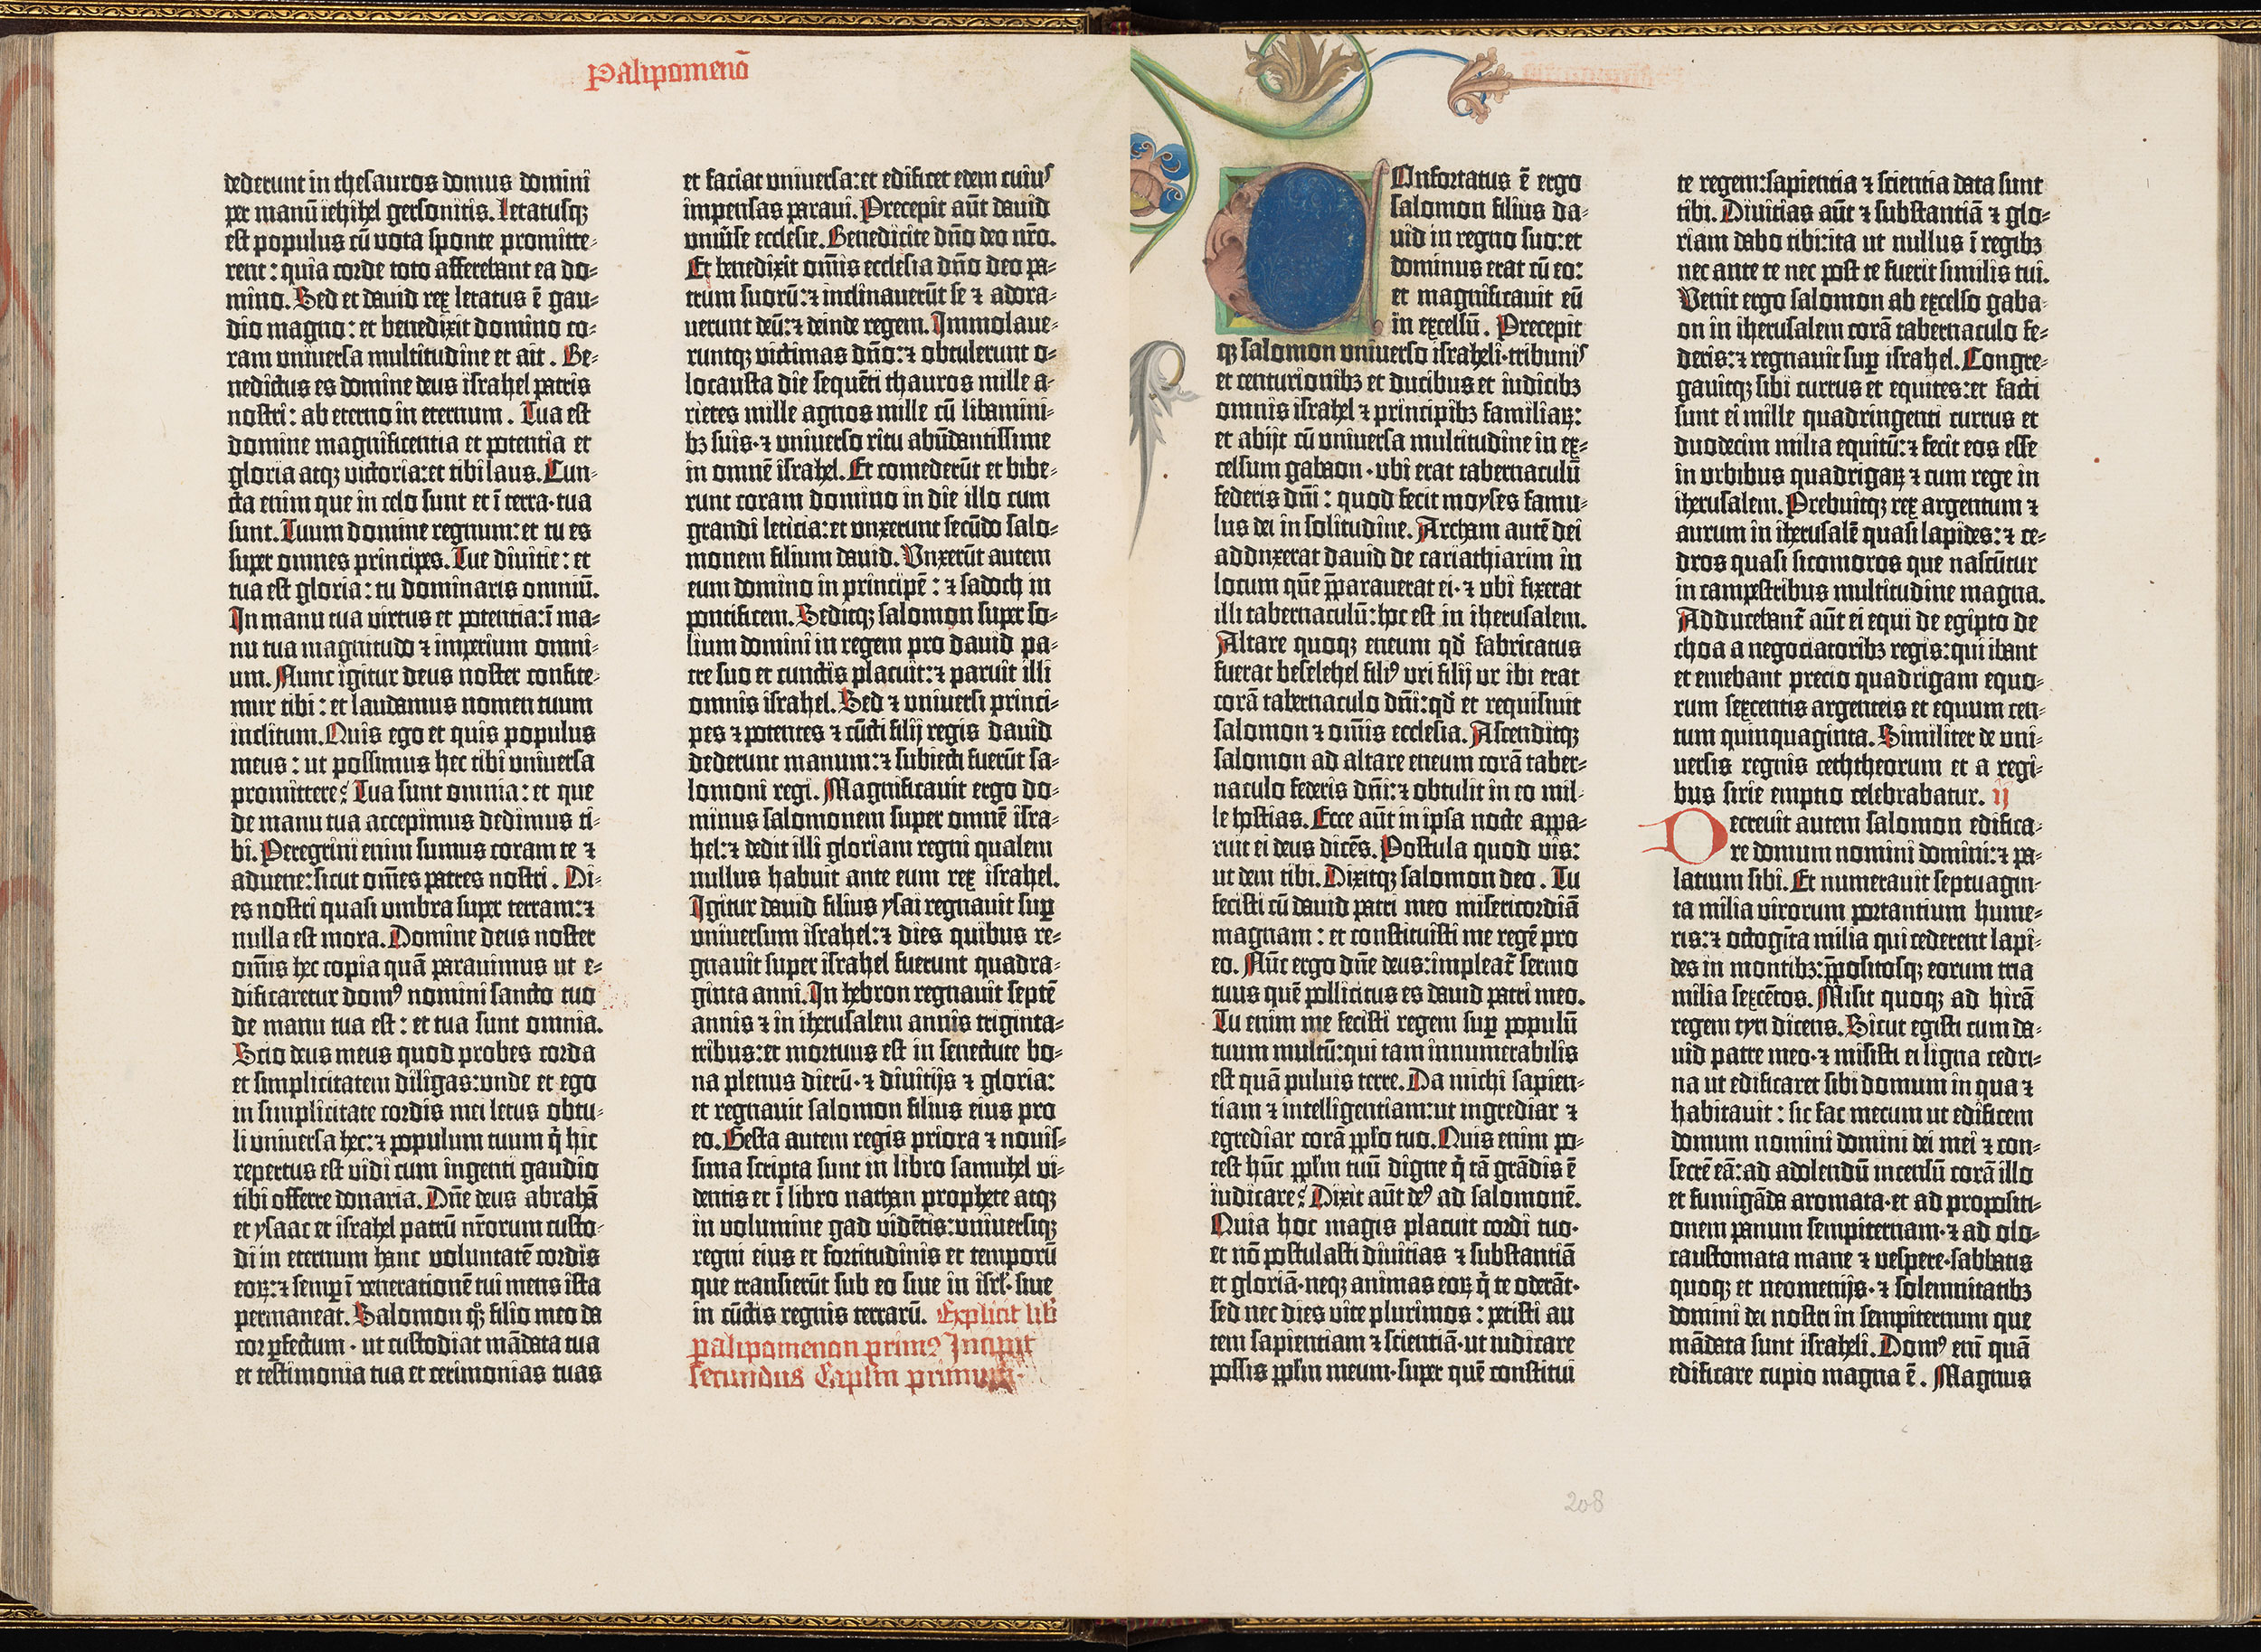 Palipomenō
dederunt in thesauros domus domini
per manū iehihel gersonitis. letatusq;
est populus cū vota sponte promitte-
rent : quia corde toto afferebant ea do-
mino. Sed et dauid rex letatus ē gau-
dio magno : et benedixit domino co-
ram vniuersa multitudine et ait . Be-
nedictus es domine deus israhel patris
nostri : ab eterno in eternum . Tua est
domine magnificentia et potentia et
gloria atq; victoria: et tibi laus. Cun-
cta enim que in celo sunt et ī terra · tua
sunt. Tuum domine regnum: et tu es
super omnes principes. Tue diuitie : et
tua est gloria : tu dominaris omniū.
In manu tua virtus et potentia: ī ma-
nu tua magnitudo ⁊ imperium omni-
um. Nunc igitur deus noster confite-
mur tibi : et laudamus nomen tuum
inclitum. Quis ego et quis populus
meus : ut possimus hec tibi vniuersa
promittere? Tua sunt omnia : et que
de manu tua accepimus dedimus ti-
bi. Peregrini enim sumus coram te ⁊
aduene: sicut om̄es patres nostri . Di-
es nostri quasi vmbra super terram: ⁊
nulla est mora. Domine deus noster
om̄is hec copia quā parauimus ut e-
dificaretur domꝰ nomini sancto tuo
de manu tua est : et tua sunt omnia.
Scio deus meus quod probes corda
et simplicitatem diligas: vnde et ego
in simplicitate cordis mei letus obtu-
li vniuersa hec: ⁊ populum tuum q̄ hic
repertus est vidi cum ingenti gaudio
tibi offerre donaria. Dn̄e deus abrahā
et ysaac et israhel patrū nr̄orum custo-
di in eternum hanc voluntatē cordis
eoꝝ: ⁊ semꝑ ī venerationē tui mens ista
permaneat. Salomon qͦꝫ filio meo da
cor ꝑfectum · ut custodiat mādata tua
et testimonia tua et cerimonias tuas
et faciat vniuersa: et edificet edem cuiuˢ
impensas paraui. Precepit aūt dauid
vniūse ecclesie. Benedicite dn̄o deo nr̄o.
Et benedixit om̄is ecclesia dn̄o deo pa-
trum suorū: ⁊ inclinauerūt se ⁊ adora-
uerunt deū: ⁊ deinde regem. Immolaue-
runtq; victimas dn̄o: ⁊ obtulerunt o-
locausta die sequēti thauros mille a-
rietes mille agnos mille cū libamini-
bꝫ suis · ⁊ vniuerso ritu abūdantissime
in omnē israhel. Et comederūt et bibe-
runt coram domino in die illo cum
grandi leticia: et vnxerunt secūdo salo-
monem filium dauid. Vnxerūt autem
eum domino in principē : ⁊ sadoch in
pontificem. Seditq; salomon super so-
lium domini in regem pro dauid pa-
tre suo et cunctis placuit: ⁊ paruit illi
omnis israhel. Sed ⁊ vniuersi princi-
pes ⁊ potentes ⁊ cūcti filij regis dauid
dederunt manum: ⁊ subiecti fuerūt sa-
lomoni regi. Magnificauit ergo do-
minus salomonem super omnē isra-
hel: ⁊ dedit illi gloriam regni qualem
nullus habuit ante eum rex israhel.
Igitur dauid filius ysai regnauit suꝑ
vniuersum israhel: ⁊ dies quibus re-
gnauit super israhel fuerunt quadra-
ginta anni. In hebron regnauit septē
annis ⁊ in iherusalem annis triginta-
tribus: et mortuus est in senectute bo-
na plenus dierū · ⁊ diuitijs ⁊ gloria:
et regnauit salomon filius eius pro
eo. Gesta autem regis priora ⁊ nouis-
sima scripta sunt in libro samuhel vi-
dentis et ī libro nathan prophete atq;
in volumine gad vidētis: vniuersiq;
regni eius et fortitudinis et temporū
que transierūt sub eo siue in isrl̄· siue
in cūctis regnis terrarū. Explicit lib̄
palipomenon primꝰ Incipit
secundus Capl̄m primum·
Onfortatus ē ergo
salomon filius da-
uid in regno suo: et
dominus erat cū eo:
et magnificauit eū
in excelsū . Precepit
q; salomon vniuerso israheli · tribuniˢ
et centurionibꝫ et ducibus et iudicibꝫ
omnis israhel ⁊ principibꝫ familiaꝝ:
et abijt cū vniuersa multitudine in ex-
celsum gabaon · vbi erat tabernaculū
federis dn̄i : quod fecit moyses famu-
lus dei in solitudine. Archam autē dei
adduxerat dauid de cariathiarim in
locum quē p̄parauerat ei · ⁊ vbi fixerat
illi tabernaculū: hoc est in iherusalem.
Altare quoq; eneum qd̄ fabricatus
fuerat beselehel filiꝰ vri filij ur ibi erat
corā tabernaculo dn̄i: qd̄ et requisiuit
salomon ⁊ om̄is ecclesia. Ascenditq;
salomon ad altare eneum corā taber-
naculo federis dn̄i: ⁊ obtulit in eo mil-
le hostias. Ecce aūt in ipsa nocte appa-
ruit ei deus dicēs. Postula quod vis:
ut dem tibi. Dixitq; salomon deo . Tu
fecisti cū dauid patri meo misericordiā
magnam : et constituisti me regē pro
eo. Nūc ergo dn̄e deus: impleat᷑ sermo
tuus quē pollicitus es dauid patri meo.
Tu enim me fecisti regem suꝑ populū
tuum multū: qui tam innumerabilis
est quā puluis terre. Da michi sapien-
tiam ⁊ intelligentiam: ut ingrediar ⁊
egrediar corā pp̄lo tuo. Quis enim po-
test hūc pp̄lm tuū digne q̄ tā grādis ē
iudicare? Dixit aūt deꝰ ad salomonē.
Quia hoc magis placuit cordi tuo ·
et nō postulasti diuitias ⁊ substantiā
et gloriā · neq; animas eoꝝ q̄ te oderāt ·
sed nec dies vite plurimos : petisti au
tem sapientiam ⁊ scientiā · ut iudicare
possis pp̄lm meum · super quē constitui
te regem: sapientia ⁊ scientia data sunt
tibi. Diuitias aūt ⁊ substantiā ⁊ glo-
riam dabo tibi: ita ut nullus ī regibꝫ
nec ante te nec post te fuerit similis tui.
Venit ergo salomon ab excelso gaba-
on in iherusalem corā tabernaculo fe-
deris: ⁊ regnauit suꝑ israhel. Congre-
gauitq; sibi currus et equites: et facti
sunt ei mille quadringenti currus et
duodecim milia equitū: ⁊ fecit eos esse
in vrbibus quadrigaꝝ ⁊ cum rege in
iherusalem. Prebuitq; rex argentum ⁊
aurum in iherusalē quasi lapides: ⁊ ce-
dros quasi sicomoros que nascūtur
in campestribus multitudine magna.
Adducebant᷑ aūt ei equi de egipto de
choa a negociatoribꝫ regis: qui ibant
et emebant precio quadrigam equo-
rum sexcentis argenteis et equum cen-
tum quinquaginta. Similiter de vni-
uersis regnis cethheorum et a regi-
bus sirie emptio celebrabatur. ij
Decreuit autem salomon edifica-
re domum nomini domini: ⁊ pa-
latium sibi. Et numerauit septuagin-
ta milia virorum portantium hume-
ris: ⁊ octogīta milia qui cederent lapi-
des in montibꝫ: p̄positosq; eorum tria
milia sexcētos. Misit quoq; ad hirā
regem tyri dicens. Sicut egisti cum da-
uid patre meo · ⁊ misisti ei ligna cedri-
na ut edificaret sibi domum in qua ⁊
habitauit : sic fac mecum ut edificem
domum nomini domini dei mei ⁊ con-
secrē eā: ad adolendū incensū corā illo
et fumigāda aromata · et ad propositi-
onem panum sempiternam · ⁊ ad olo-
caustomata mane ⁊ vespere · sabbatis
quoq; et neomenijs · ⁊ solemnitatibꝫ
domini dei nostri in sempiternum que
mādata sunt israheli. Domꝰ eni quā
edificare cupio magna ē . Magnus
208